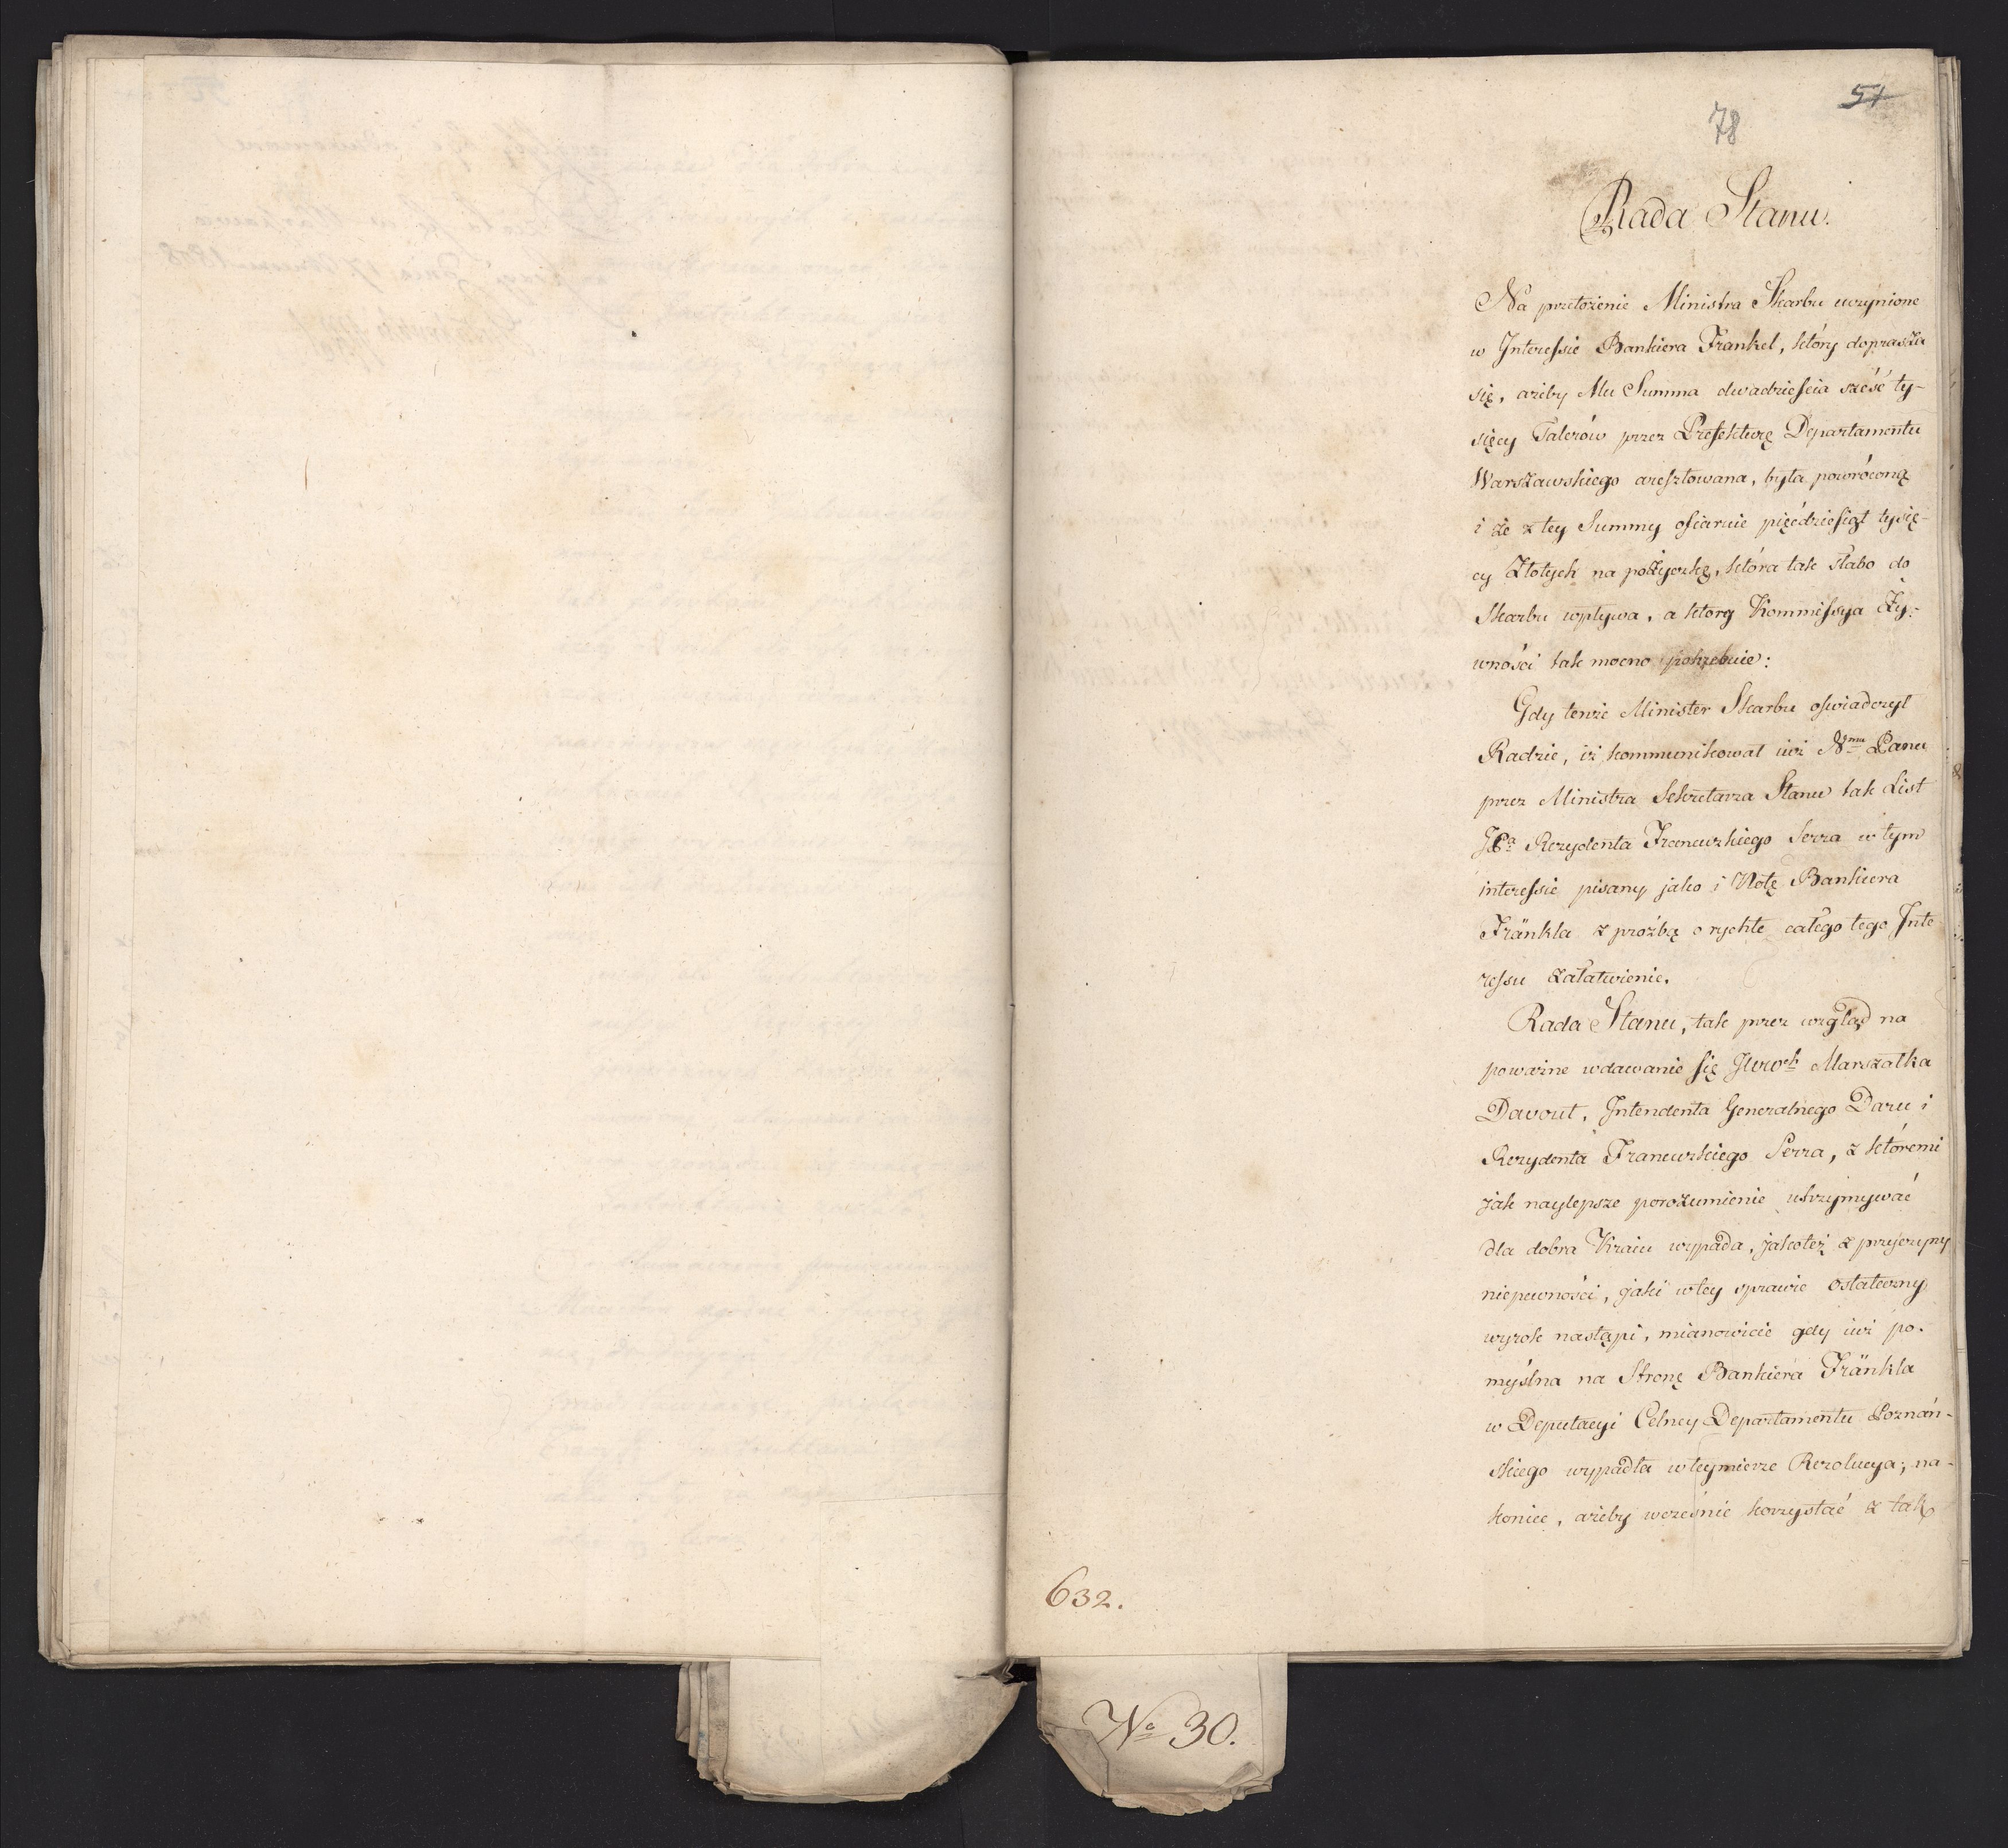 51
78
Rada Stanu.
Na przełożenie Ministra Skarbu uczynione
w Interessie Bankiera Frankel, który doprasza
się, ażeby Mu Summa dwadzieścia sześć ty-
sięcy Talerów przez Prefekturę Departamentu
Warszawskiego aresztowana, była powróconą
i że z tey Summy ofiaruie pięćdziesiąt tysię-
cy Złotych na pożyczkę, która tak słabo do
Skarbu wpływa, a którey Kommissya Ży-
wności tak mocno potrzebuie:
Gdy tenże Minister Skarbu oświadczył
Radzie, iż kommunikował iuż Nmu Panu
przez Ministra Sekretarza Stanu tak List
JPa Rezydenta Francuzkiego Serra w tym
interessie pisany jako i Notę Bankiera
Fränkla z proźbą o rychłe całego tego Inte
ressu załatwienie.
Rada Stanu, tak przez wzgląd na
poważne wdawanie się JWWch Marszałka
Davout, Intendenta Generalnego Daru i
Rezydenta Francuzkiego Serra, z któremi
jak naylepsze porozumienie utrzymywać
dla dobra Kraiu wypada, jakoteż z przyczyny
niepewności, jaki w tey sprawie ostateczny
wyrok nastąpi, mianowicie gdy iuż po-
myślna na Stronę Bankiera Fränkla
w Deputacyi Celney Departamentu Poznań-
skiego wypadła w teymierze Rezolucya; na-
koniec, ażeby wcześnie korzystać z tak
632.
No 30.